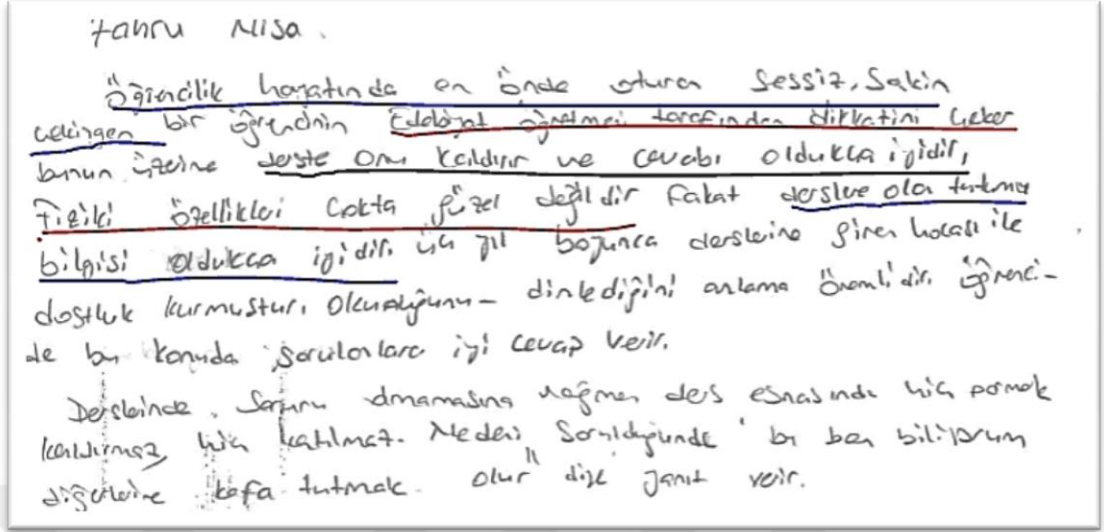 Fahru Nisa.
Öğrencilik hayatında en önde oturan Sessiz, Sakin
çekingen bir öğrencinin Edebiyat öğretmei tarafından dikkatini çeker
bunun üzerine derste onu kaldırır ve cevabı oldukca iyidir,
Fiziki özellikleri Cokta güzel değildir fakat derslere olan tutumu
bilgisi oldukca iyidir. üç yıl boyunca derslerine giren hocası ile
dostluk kurmustur. Okuduğunu - dinlediğini anlama önemlidir. öğrenci-
de bu konuda sorulanlara iyi cevap verir.
Derslerinde. Sorunu olmamasına rağmen ders esnasında hiç parmak
kaldırmaz, hiç katılmaz. Nedeni Sorulduğunda " bu ben biliyorum
diğerlerine kafa tutmak olur" diye yanıt verir.